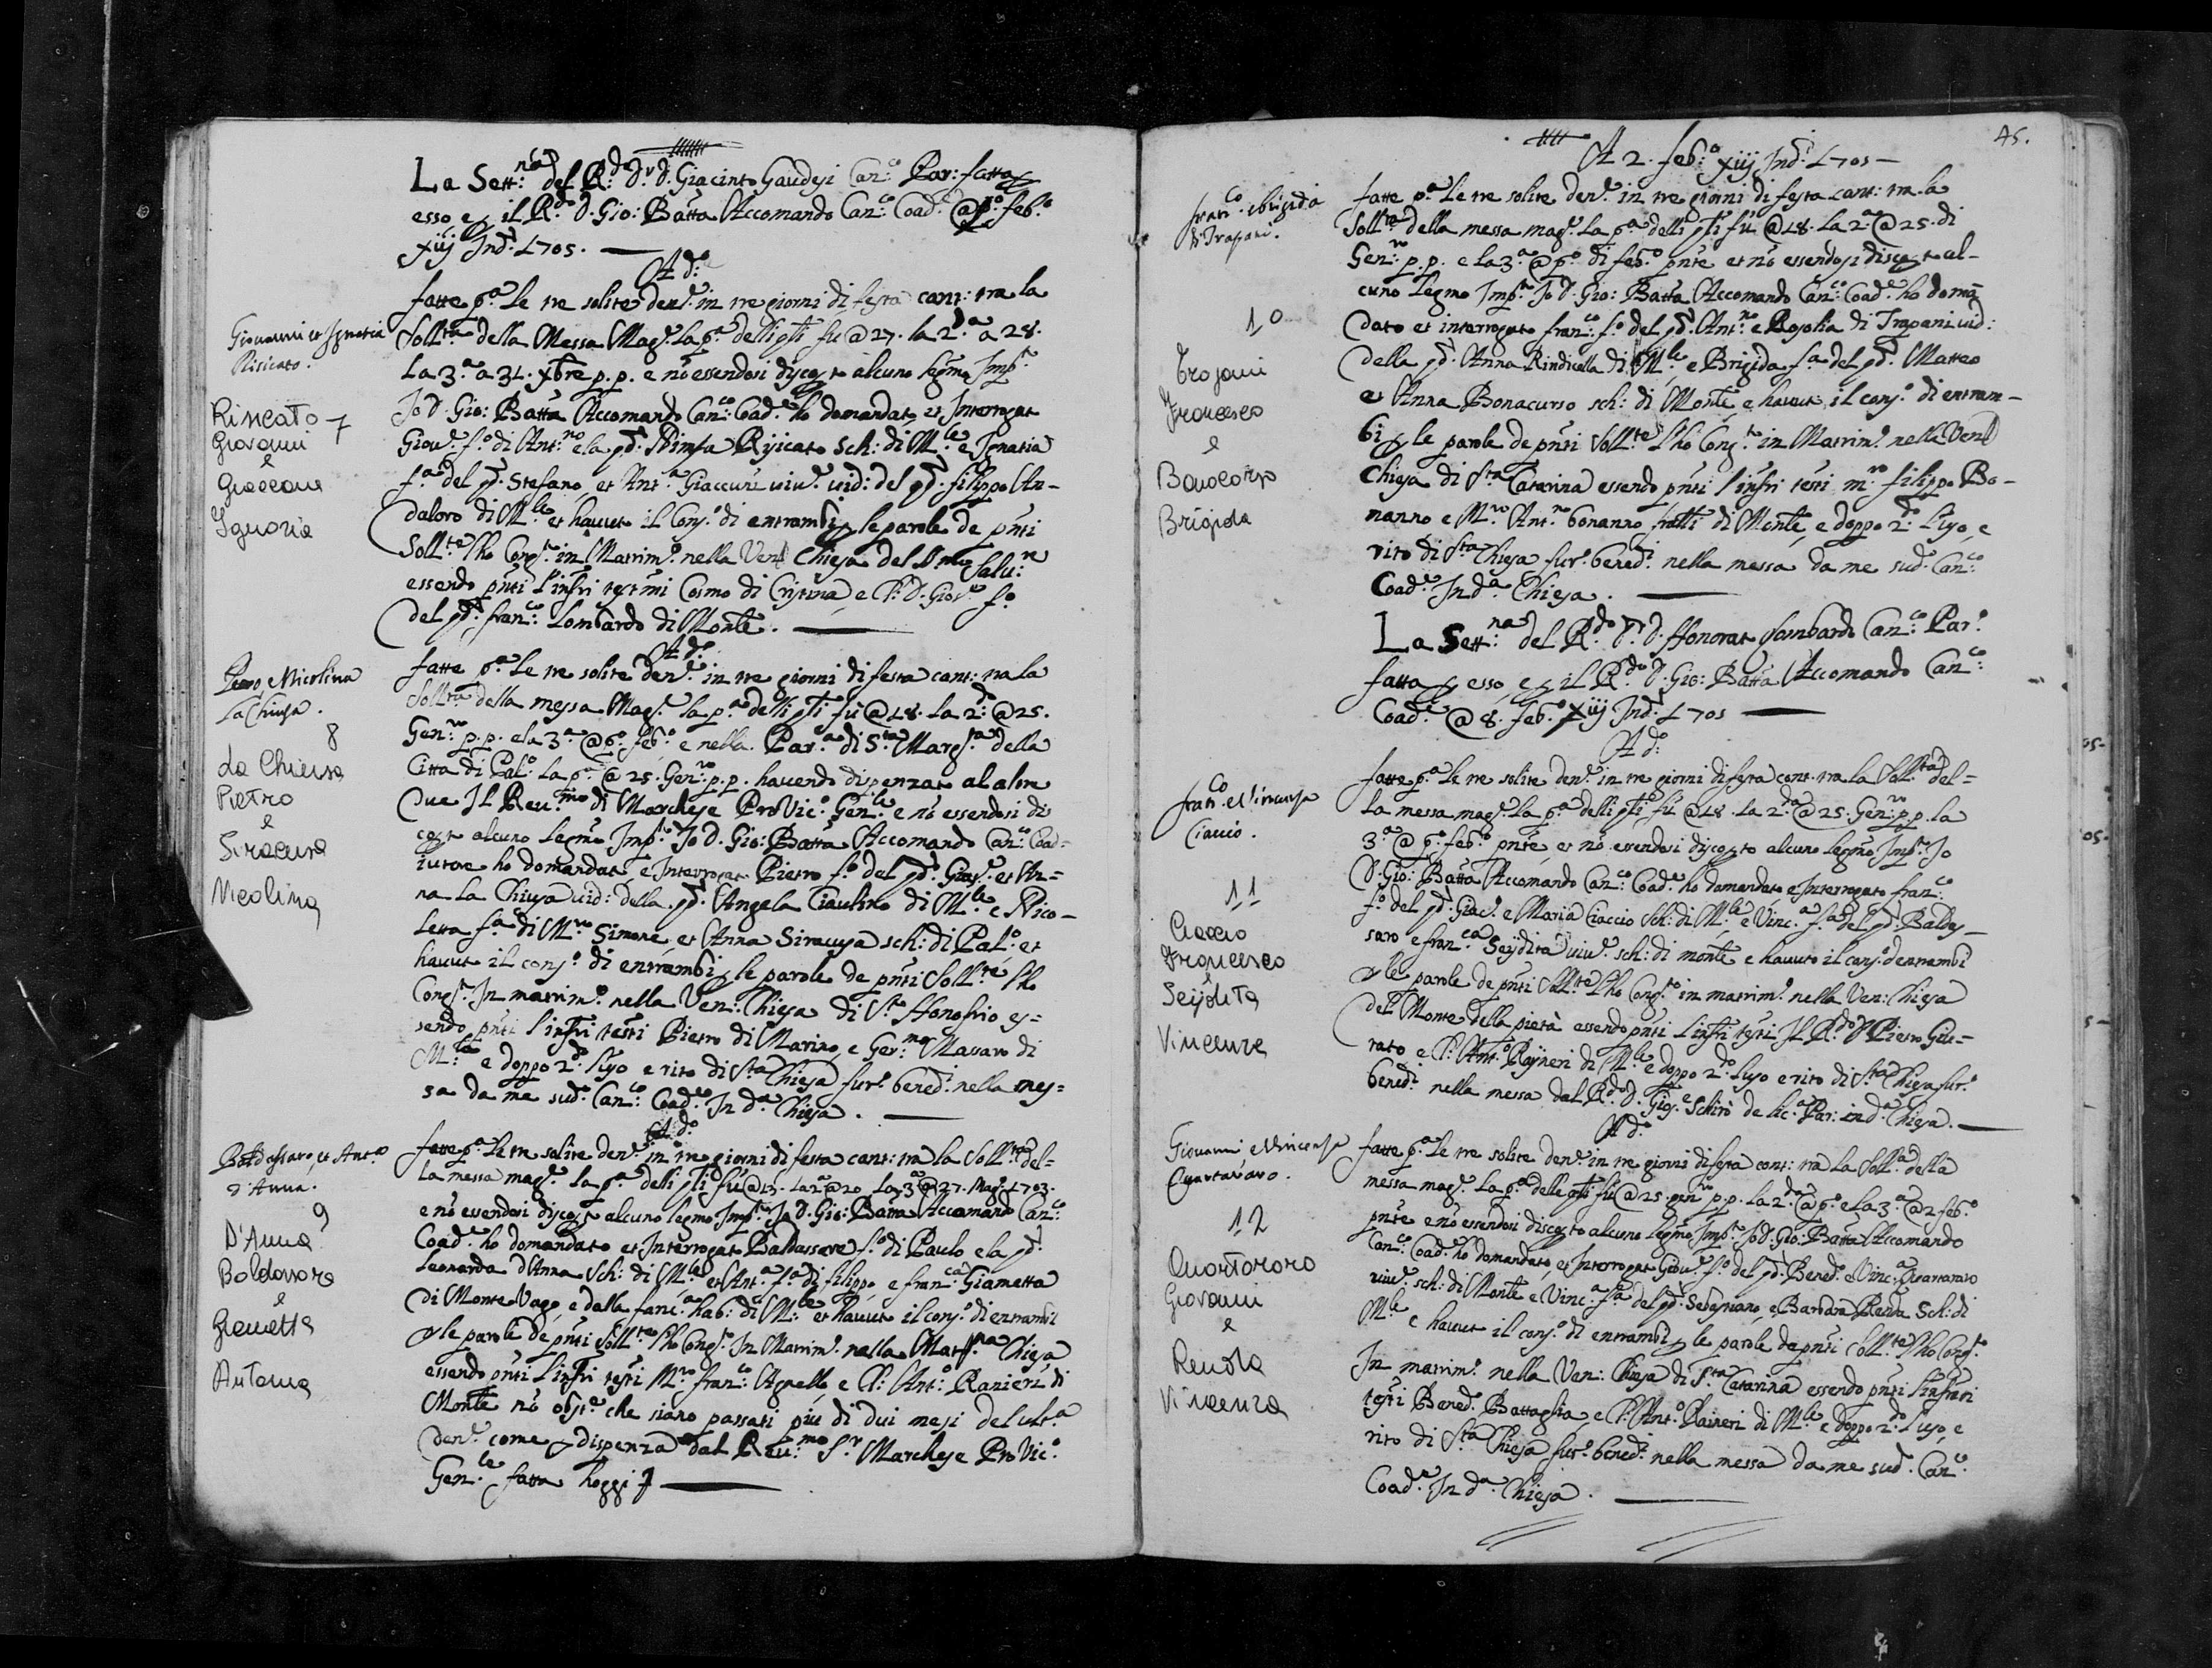 La Sett:na del R:do Dr D. Giacinto Gaudesi Can:co Par: fatta p
esso e p il R:do D. Gio: Batta Accomando Can:co Coad:e @ po: feb:o
xiij Ind: 1705.
A d:o
Giovanni et Ignatia
Risicato.
Riseato 7
Giovanni
e
Giaccone
Ignazia
fatte p:a le tre solite den: in tre giorni di festa cant: tra la
Soll:ta della Messa Mag: la p:a delli pti fu @ 27. la 2:da a 28.
La 3:a a 31. xbre p.p. e nō essendosi discoperto alcuno legmo Imp:to
Jo D. Gio: Batta Accomando Can:co Coad:e ho domandato, et Interrogat
Giov: f:o di Ant:no e la qd: Ninfa Risicato Sch: di M:le e Ignatia
f:a del qd: Stefano, et Ant:a Giaccuni viu: vid: del qd: filippo An-
daloro di M:le et havuto il Cons:o di entrambi p le parole de pnti
Soll:te l'ho Cong:to in Matrim:o nella Ven: Chiesa del S:mo Salv:re
essendo pnti l'infri testimi Cosmo di Cristina, e Cl: D. Gios: f:o
del qd: fran:co Lombardo di Monte.
A d:o
Pietro, e Nicolina
La Chiusa.
8
La Chiusa
Pietro
e
Siracusa
Nicolina
fatte p:a le tre solite den: in tre giorni di festa cant: tra la
Soll:ta della messa Mag: la p:a delli pti fu @ 18. la 2:da @ 25.
Gen:ro p.p. e la 3:a @ p:o feb:o e nella Par:a di S:ta Marg:ta della
Citta di Pal:o la p:a @ 25. Gen:ro p.p. havendo dispenzato al altre
due Il Rev:mo di Marchese ProVic:o Gen:le e nō essendosi dis
coperto alcuno legmo Imp:to Jo D. Gio: Batta Accomando Can:co Coad=
iutore ho domandato e Interrogat Pietro f:o del qd: Gios: et An=
na La Chiusa vid: della qd: Angela Ciaulino di M:le e Nico-
letta f:a di M:ro Simone, et Anna Siracusa sch: di Pal:o et
havuto il cons:o di entrambi p le parole de pnti Soll:te l'ho
Cong:to In matrim:o nella Ven: Chiesa di S:to Honofrio es=
sendo pnti l'infri testi Pietro di Marino, e Ger:mo Massaro di
M:le e doppo 2:do l'uso e rito di S:ta Chiesa fur:o bened: nella mes=
sa da me sud:o Can:co Coad:e In d:a Chiesa.
A d:o
Baldassaro, et Ant:a
d'Anna.
9
D'Anna
Baldassare
e
Giametta
Antonia
fatte p:a le tre solite den: in tre giorni di festa cant: tra la Soll:ta del=
la messa mag: la p:a delli pti fu @ 13. la 2:a @ 20. la 3:a @ 27. Mag: 1703.
e nō essendosi discoperto alcuno legmo Imp:to Jo D. Gio: Batta Accomando Can:co
Coad:e ho domandato et Interrogat Baldassare f:o di Paulo e la qd:
Leonarda d'Anna Sch: di M:le et Ant:a f:a di filippo, e fran:ca Giametta
di Monte Vago, e dalla fanc:a hab: di M:le et havuto il cons:o di entrambi
p le parole de pnti Soll:te l'ho Cong:to In Matrim:o nella Matr: Chiesa
essendo pnti l'infri testi M:ro fran:co Agnello, e Cl: Ant:o Ranieri di
Monte nō obst:e che siano passati più di dui mesi del ult:a
den: come p dispenza dal Rev:mo S:r Marchese ProVic:o
Gen:le fatta hoggi
45.
A 2. feb:o xiij Ind: 1705
fran:co e brigida
di Trapani.
10
Trapani
Francesco
e
Bonocorso
Brigida
fatte p:a le tre solite den: in tre giorni di festa cant: tra la
Soll:ta della messa mag: la p:a delli pti fu @ 18. la 2:a @ 25. di
Gen:ro p.p. e la 3:a @ p:o di feb:o pnte et nō essendosi discoperto al-
cuno legmo Imp:to Jo D. Gio: Batta Accomando Can:co Coad:e ho domā
dato et interrogato fran:co f:o del qd: Ant:no e Rosolia di Trapani vid:
della qd: Anna Rindinella di M:le e Brigida f:a del qd: Matteo
et Anna Bonacurso sch: di Monte, e havuto il cons:o di entram-
bi p le parole de pnti Soll:te l'ho Cong:to in Matrim:o nella Ven:
Chiesa di S:ta Catarina essendo pnti l'infri testi m:ro filippo Bo-
nanno e M:ro Ant:no bonanno fratti di Monte, e doppo 2:do l'uso, e
rito di S:ta Chiesa fur:o bened: nella messa da me sud:o Can:co
Coad:e In d:a Chiesa.
La Sett:na del R:do Dr D. Honorato Lombardo Can:co Par:o
fatta p esso, e p il R:do D. Gio: Batta Accomando Can:co
Coad:e @ 8. feb:o xiij Ind: 1705
A d:o
fran:co e Vincenza
Ciaccio.
11
Ciaccio
Francesco
e
Seidita
Vincenza
fatte p:a le tre solite den: in tre giorni di festa cant: tra la Soll:ta del=
la messa mag: la p:a delli pti fu @ 18. la 2:da @ 25. Gen:ro p.p. la
3:a @ p:o feb:o pnte, et nō essendosi discoperto alcuno legmo Imp:to Jo
D. Gio: Batta Accomando Can:co Coad:e ho domandato e Interrogato fran:co
f:o del qd: Giac:o e Maria Ciaccio Sch: di M:le e Vinc:a f:a del qd: Baldas-
saro e fran:ca Seydita viu: sch: di monte e havuto il cons:o d'entrambi
p le parole de pnti Soll:te l'ho Cong:to in matrim:o nella Ven: Chiesa
del Monte della pietà essendo pnti l'infri testi Il R:do D. Pietro Giu-
rato e Cl: Ant:o Rayneri di M:le e doppo 2:do l'uso e rito di S:ta Chiesa fur:o
bened: nella messa dal R:do D. Gios:e Schirò de lic:a Par: in d:a Chiesa.
A d:o
Giovanni e Vincenza
Quartararo.
12
Quartararo
Giovanni
e
Renda
Vincenza
fatte p:a le tre solite den: in tre giorni di festa cant: tra la Soll:ta della
messa mag: la p:a delle pti fu @ 25. gen:ro p.p. la 2:da @ p:o e la 3:a @ 2 feb:o
pnte e nō essendosi discoperto alcuno legmo Imp:to Jo D. Gio: Batta Accomando
Can:co Coad:e ho domandato, et Interrogat Giov: f:o del qd: Bened:o e Vinc:a Quartararo
viu: sch: di Monte e Vinc:a f:a del qd: Sebastiano, e Barbara Renda Sch: di
M:le e havuto il cons:o di entrambi p le parole de pnti Soll:te l'ho Cong:to
In matrim:o nella Ven: Chiesa di S:ta Catarina essendo pnti l'infrari
testi Bened:o Battaglia, e Cl: Ant:o Raineri di M:le e doppo 2:do l'uso, e
rito di S:ta Chiesa fur:o bened: nella messa da me sud:o Can:co
Coad:e In d:a Chiesa.